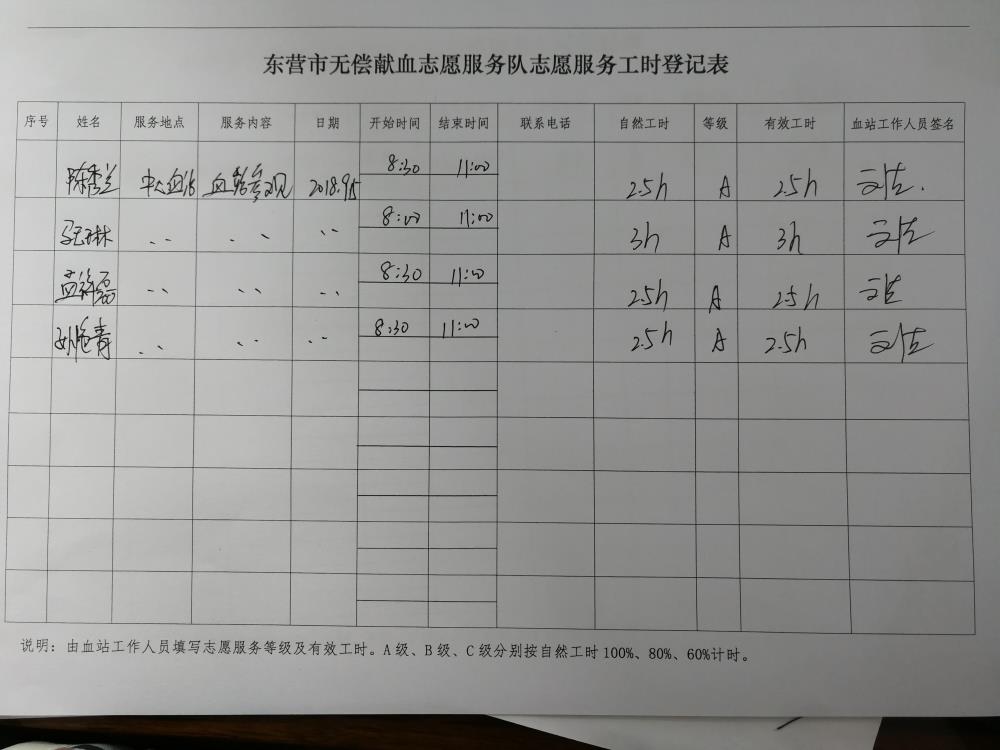 东营市无偿献血志愿服务队志愿服务工时登记表
序号 姓名 服务地点 服务内容 日期 开始时间 结束时间 联系电话 自然工时 等级 有效工时 血站工作人员签名
陈秀兰 中心血站 血站参观 2018.9.15 8:30 11:00 2.5h A 2.5h
8:00 11:00 3h A 3h
8:30 11:00 2.5h A 2.5h
8:30 11:00 2.5h A 2.5h
说明：由血站工作人员填写志愿服务等级及有效工时。A级、B级、C级分别按自然工时100%、80%、60%计时。